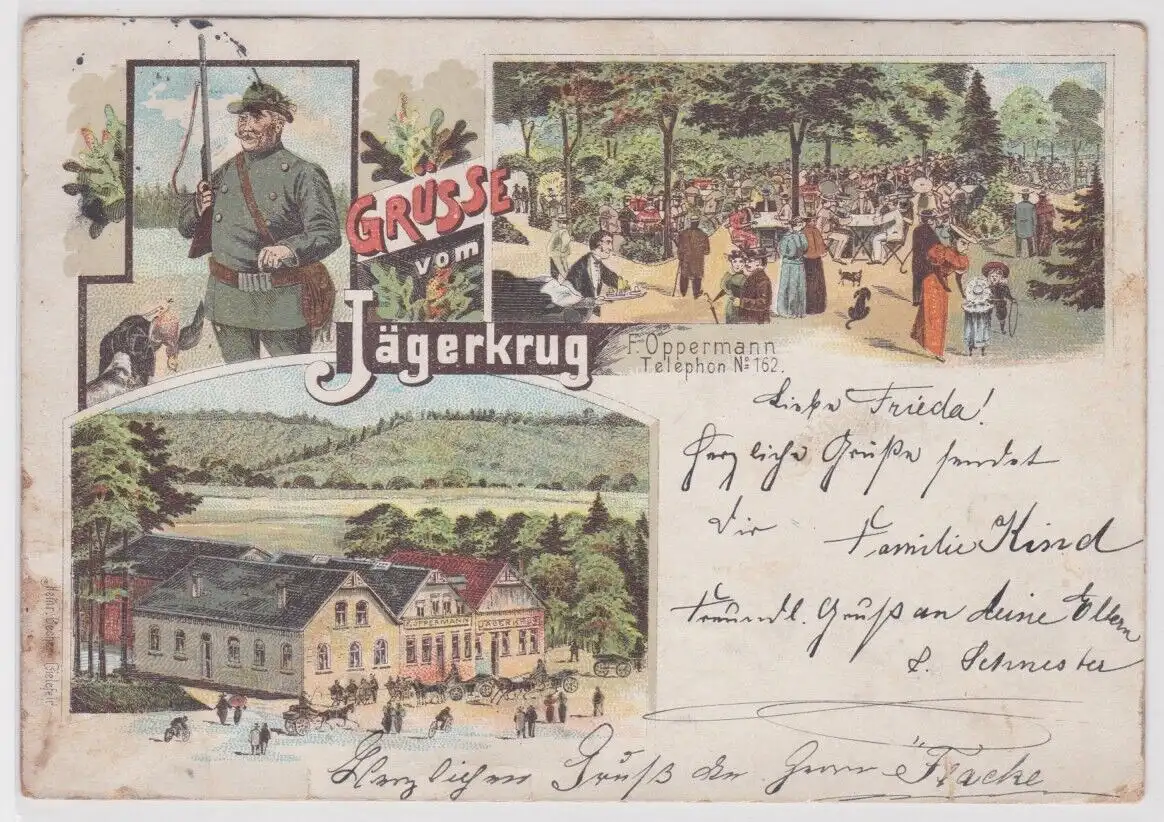 GRÜSSE
vom
Jägerkrug
F. Oppermann
Telephon No 162.
Liebe Frieda!
Herzliche Grüße sendet
Dir Familie Kind
Freundl. Gruß an deine Eltern
&. Schwester
Herzlichen Gruß Herrn Flacke
F. OPPERMANN JÄGERKRUG
Bielefeld